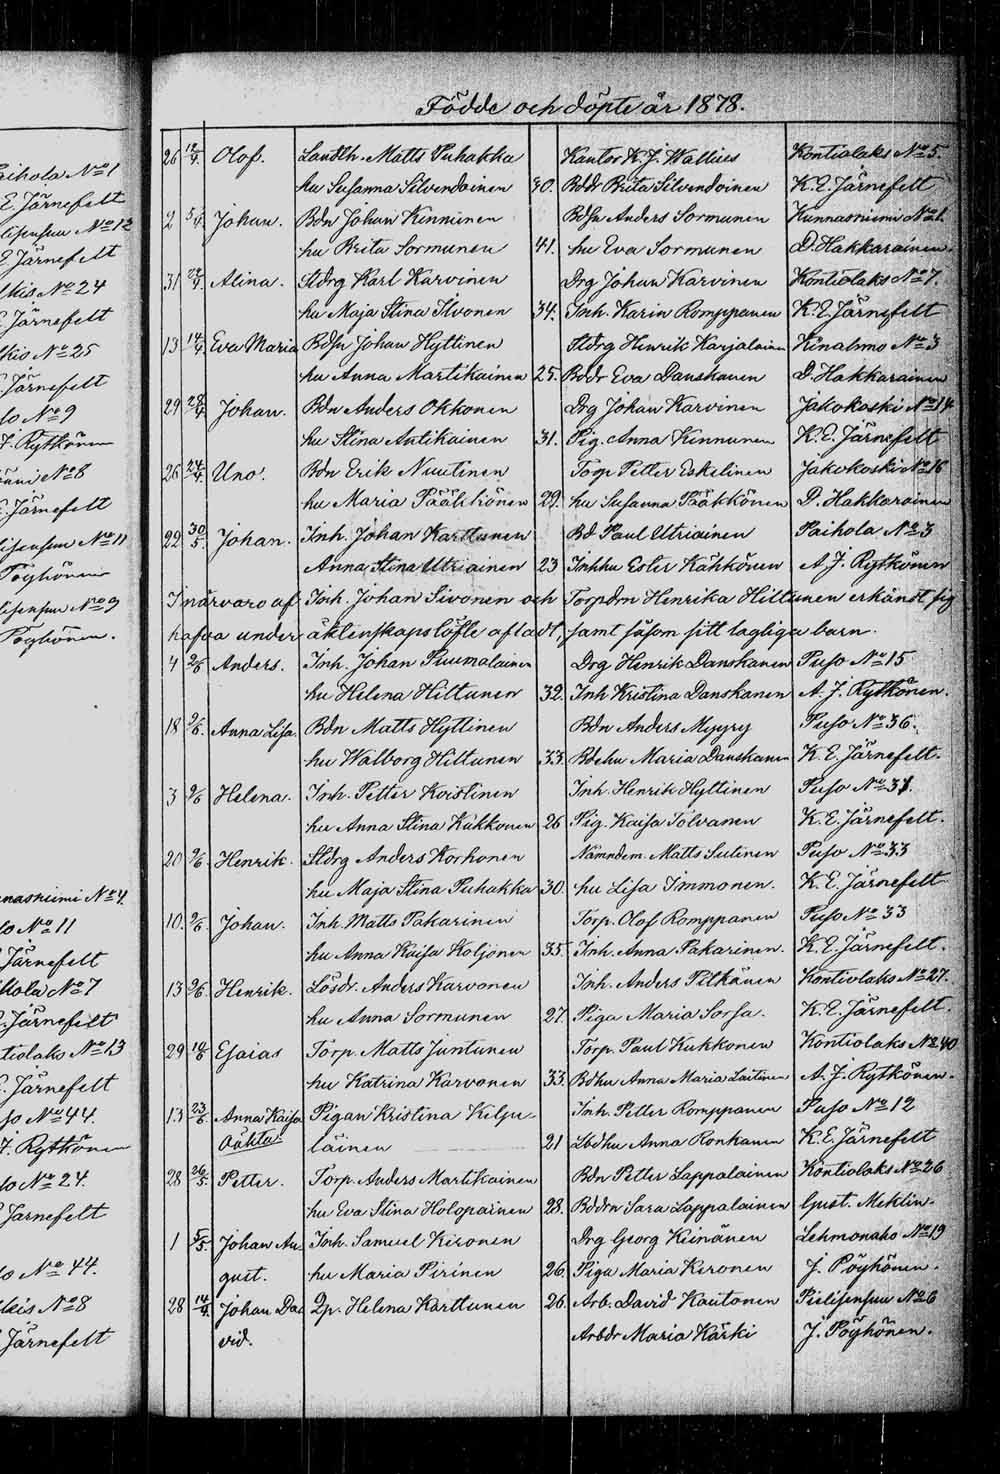 Födde och döpte år 1878.
26 12/4. Olof. Landth. Matts Puhakka Kantor K. J. Wallius Kontiolaks No 5.
hu Susanna Silvendoinen 40. Bddr Brita Silvendoinen K. E. Järnefelt
2 5/4 Johan. Bdn Johan Kinnunen Bdsn Anders Sormunen Kunnasniemi No 1.
hu Brita Sormunen 41. hu Eva Sormunen D. Hakkarainen.
31 /4. Alina. Stdrg Karl Karvinen Drg Johan Karvinen Kontiolaks No 7.
hu Maja Stina Ilvonen 34. Inh. Karin Romppanen K. E. Järnefelt
13 14/4 Eva Maria Bdsn Johan Hyttinen Stdrg Henrik Karjalainen Kinahmo No 3
hu Anna Martikainen 25. Bddr Eva Danskanen D. Hakkarainen
29 28/4 Johan. Bdn Anders Okkonen Drg Johan Karvinen Jakokoski No 14
hu Stina Antikainen 31. Pig. Anna Kinnunen K. E. Järnefelt
26 24/4. Uno. Bdn Erik Nuutinen Torp Petter Eskelinen Jakokoski No 16
hu Maria Pääkkönen 29. hu Susanna Pääkkönen D. Hakkarainen
22 30/5. Johan. Inh. Johan Karttunen Bd Paul Utriainen Paihola No 3
Anna Stina Utriainen 23 Inhhu Ester Kähkönen A. J. Rytkönen
I närvaro af Inh. Johan Sivonen och Torpdrn Henrika Hiltunen erkändt sig
hafva under äktenskapslöfte afladt, samt såsom sitt lagliga barn.
4 2/6 Anders. Inh. Johan Puumalainen Drg Henrik Danskanen Puso No 15
hu Helena Hiltunen 32. Inh Kristina Danskanen A. J. Rytkönen.
18 9/6. Anna Lisa. Bdn Matts Hyttinen Bdn Anders Myyry Puso No 36.
hu Walborg Hiltunen 33. Bdehu Maria Danskanen K. E. Järnefelt.
3 9/6 Helena. Inh. Petter Koistinen Inh. Henrik Hyttinen Puso No 31.
hu Anna Stina Kukkonen 26 Pig. Kaisa Tolvanen K. E. Järnefelt.
20 9/6. Henrik. Stdrg Anders Korhonen Nämndem. Matts Sutinen Puso No 33
hu Maja Stina Puhakka 30. hu Lisa Immonen. K. E. Järnefelt
10. 9/6. Johan. Inh. Matts Pakarinen Torp. Olof Romppanen Puso No 33
hu Anna Kaisa Koljonen 35. Inh. Anna Pakarinen. K. E. Järnefelt.
13 9/6. Henrik. Lösdr. Anders Karvonen Inh. Anders Pitkänen Kontiolaks No 27.
hu Anna Sormunen 27. Piga Maria Sorsa. K. E. Järnefelt.
29 10/6 Esaias Torp. Matts Juntunen Torp. Paul Kukkonen Kontiolaks No 40
hu Katrina Karvonen 33. Bdhu Anna Maria Laitinen A. J. Rytkönen.
13 23/6. Anna Kaisa Pigan Kristina Kelju- Inh. Petter Romppanen Puso No 12
Oäkta. läinen 21 Lbdhu Anna Ronkanen K. E. Järnefelt
28 26/5. Petter. Torp. Anders Martikainen Bdn Petter Lappalainen Kontiolaks No 26
hu Eva Stina Holopainen 28. Bddrn Sara Lappalainen Gust. Meklin.
1 5/5. Johan Au- Inh. Samuel Kironen Drg Georg Kiinänen Lehmonaho No 19
gust. hu Maria Pirinen 26. Piga Maria Keronen J. Pöyhönen.
28 14/4. Johan Da- Qp. Helena Karttunen 26. Arb. David Kautonen Pielisensuu No 6
vid. Arbdr Maria Kärki J. Pöyhönen.
Paihola No 1
E. Järnefelt
No 12
E Järnefelt
No 24
Järnefelt
No 25
Järnefelt
No 9
J. Rytkönen
No 8
E. Järnefelt
No 11
Pöyhönen
No 9
Pöyhönen.
nasniemi No 4.
No 11
Järnefelt
No 7
E. Järnefelt
tiolaks No 13
E. Järnefelt
so No 44.
J. Rytkönen
No 24.
Järnefelt
No 44.
No 8
Järnefelt